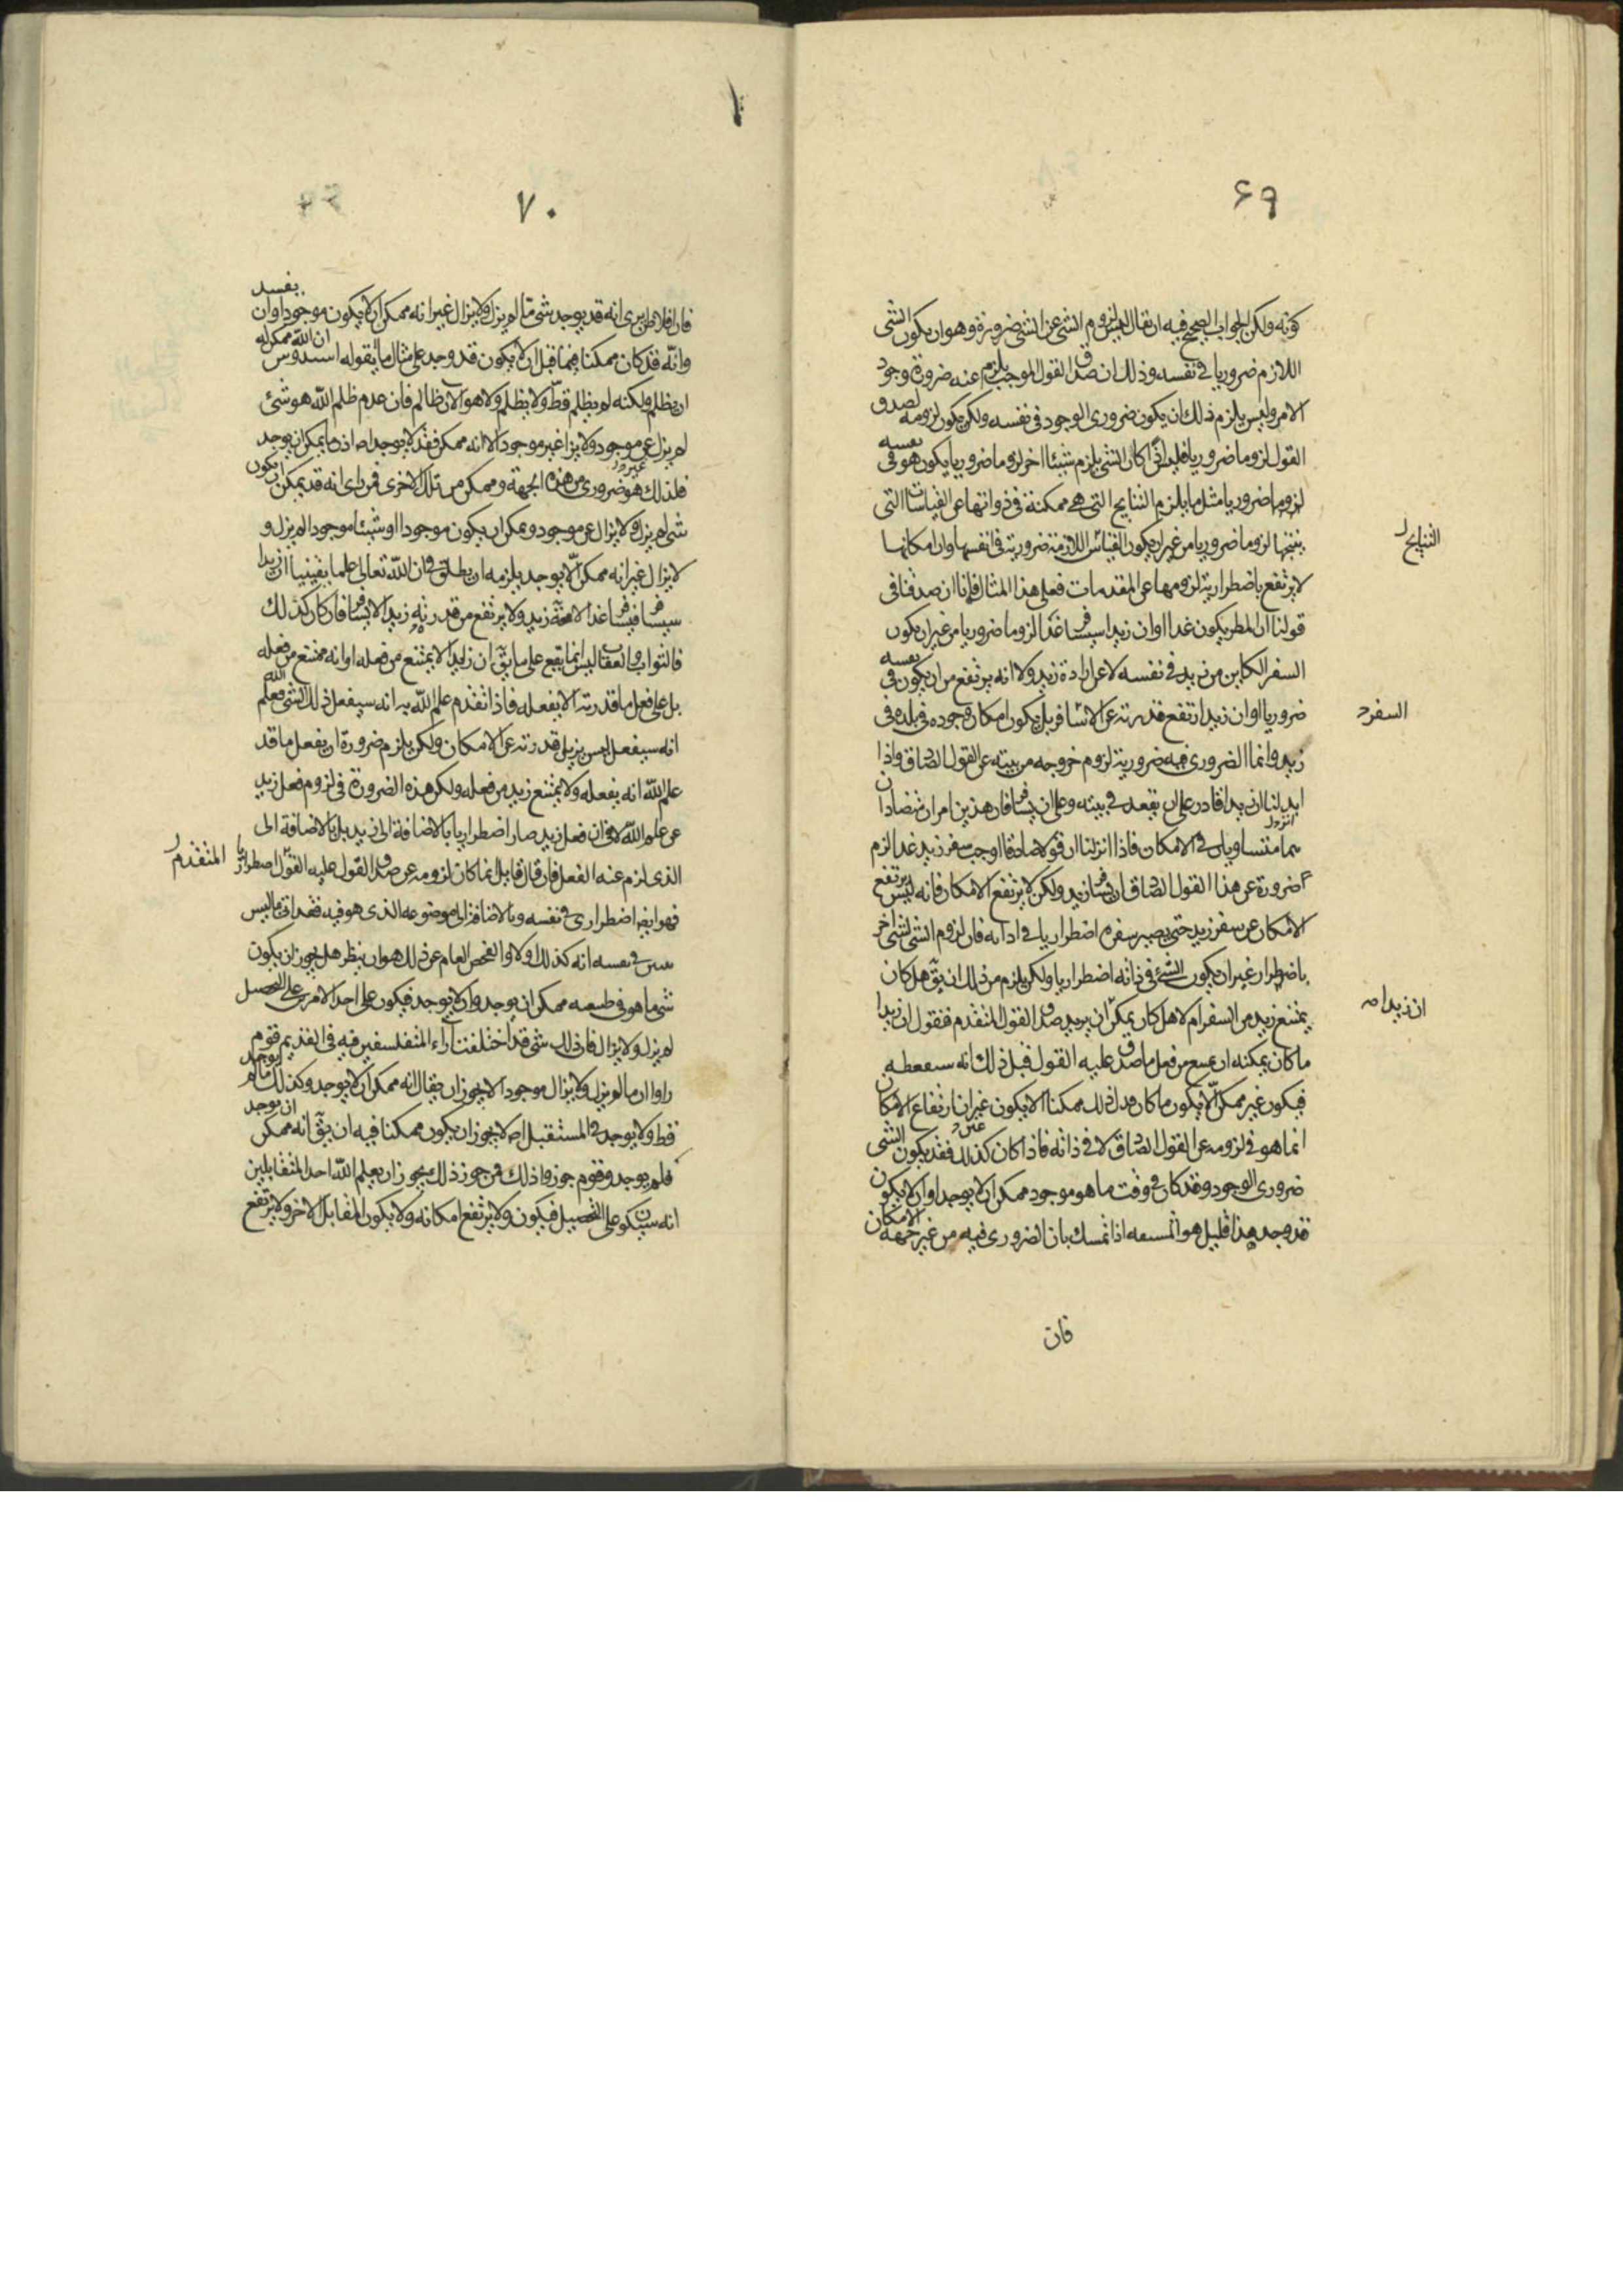 ۶۹
كونه ولكن الجواب الصحيح فيه ان يقال ليس لزوم الشئ عن الشئ ضرورة وهو ان يكون الشئ
اللازم ضروريا فى نفسه وذلك ان صدق القول الموجب يلزم عنه ضرورة وجود
الامر وليس يلزم ذلك ان يكون ضرورى الوجود فى نفسه ولكن يكون لزومه لصدق
القول لزوما ضروريا فليس اذا كان الشئ يلزم شيئا اخر لزوما ضروريا يكون هو فى نفسه
لزوما ضروريا مثل ما يلزم النتايج التى هى ممكنة فى ذواتها عن القياسات التى
ينتجها لزوما ضروريا من غير ان يكون القياس اللازمة ضرورية فى انفسها وان امكانها
النتايج
لا يرتفع باضطرارية لزومها عن المقدمات فعلى هذا المثال فانا ان صدقنا فى
قولنا ان المطر يكون غدا او ان زيدا سيسافر غدا لزوما ضروريا من غير ان يكون
السفر الكاين من زيد فى نفسه لا عن ارادة زيد ولا انه يرتفع من ان يكون فى نفسه
ضروريا او ان زيدا ترتفع قدرته عن الا يسافر بل يكون امكان وجوده فى بلده فى
السفر
زيد وانما الضرورى فيه ضرورية لزوم خروجه من بيته عن القول الصادق واذا
ان زيدا قادر على ان يقعد فى بيته وعلى ان يسافر فان هذين امران متضادان
هما متساويان فى الامكان فاذا انزلنا ان قولا صادقا اوجب سفر زيد غدا لزم
ضرورة عن هذا القول الصادق ان يسافر زيد ولكن لا يرتفع الامكان فانه ليس يرتفع
الامكان عن سفر زيد حتى يصير سفره اضطراريا فى ذاته فان لزوم الشئ لشئ اخر
باضطرار غير ان يكون الشئ فى ذاته اضطراريا ولكن يلزم من ذلك ان يق هل كان
يمتنع زيد من السفر ام لا هل كان يمكن ان صدق القول المتقدم فنقول ان زيدا
ان زيدا
ما كان يمكنه ان من فعل ما صدق عليه القول قبل ذلك انه
فيكون غير ممكن الا يكون ما كان قبل ذلك ممكنا الا يكون غير ان ارتفاع الامكان
انما هو فى لزومه عن القول الصادق لا فى ذاته فاذا كان كذلك فقد يكون الشئ
ضرورى الوجود وقد كان فى وقت ما هو موجود ممكن ان لا يوجد او ان لا يكون
قد وجد هذا قليل هو اذا تمسك بان الضرورى فيه من غير جهة الامكان
فان
۷۰
فان افلاطن يرى انه قد يوجد شئ ما لم يزل ولا يزال غير انه ممكن ان لا يكون موجودا وان يفسد
وانه قد كان ممكنا فيما قبل ان لا يكون قد وجد على مثال ما يقوله ان الله ممكن له
ان يظلم ولكنه لم يظلم قط ولا يظلم ولا هو الان ظالم فان عدم ظلم الله هو شئ
لم يزل غير موجود ولا يزال غير موجود الا انه ممكن فقد لا يوجد اذن ما يمكن ان يوجد
فلذلك هو ضرورى من هذه الجهة وممكن من تلك الاخرى فمن راى انه قد يمكن ان يكون
شئ لم يزل ولا يزال غير موجود ويمكن ان يكون موجودا او شيئا موجودا لم يزل و
لا يزال غير انه ممكن الا يوجد يلزمه ان يطلق فان الله تعالى علما يقينيا ان زيدا
سيسافر فيسافر غدا لا محة زيد ولا يرتفع من قدرته زيدا الا يسافر فان كان كذلك
فالثواب والعقاب ليس انما يقع على ما يق ان زيدا لا يمتنع من فعله او انه ممتنع من فعله
بل على فعل ما قدرته الا يفعله فاذا تقدم علم الله به انه سيفعل ذلك الشئ فعلم الله
انه سيفعل ليس يزيل قدرته عن الامكان ولكن يلزم ضرورة ان يفعل ما قد
علم الله انه يفعله ولا يمتنع زيد من فعله ولكن هذه الضرورة فى لزوم فعل زيد
عن علم الله لا ان فعل زيد صار اضطراريا بالاضافة الى زيد بل بالاضافة الى
الذى لزم عنه الفعل فان قال قايل انما كان لزومه عن صدق القول عليه القول اضطراريا
المتقدم
فهو ايضا اضطرارى فى نفسه وبالاضافة الى موضوعه الذى هو فيه فقد اتى بما ليس
بين فى نفسه انه كذلك اولا والفحص العام عن ذلك هو ان ينظر هل يجوز ان يكون
شئ ما هو فى طبيعته ممكن ان يوجد وان لا يوجد فيكون على احد الامرين على التحصيل
لم يزل ولا يزال فان ذلك شئ قد اختلفت آراء المتفلسفين فيه فى القديم فقوم
راوا ان ما لم يزل ولا يزال موجودا لا يجوز ان يقال انه ممكن ان لا يوجد وكذلك ما لم يوجد
قط ولا يوجد فى المستقبل اصلا لا يجوز ان يكون ممكنا فيه ان يق انه ممكن ان يوجد
فلم يوجد وقوم جوزوا ذلك فمن جوز ذلك يجوز ان يعلم الله احد المتقابلين
انه سيكون على التحصيل فيكون ولا يرتفع امكانه ولا يكون المقابل الاخر ولا يرتفع